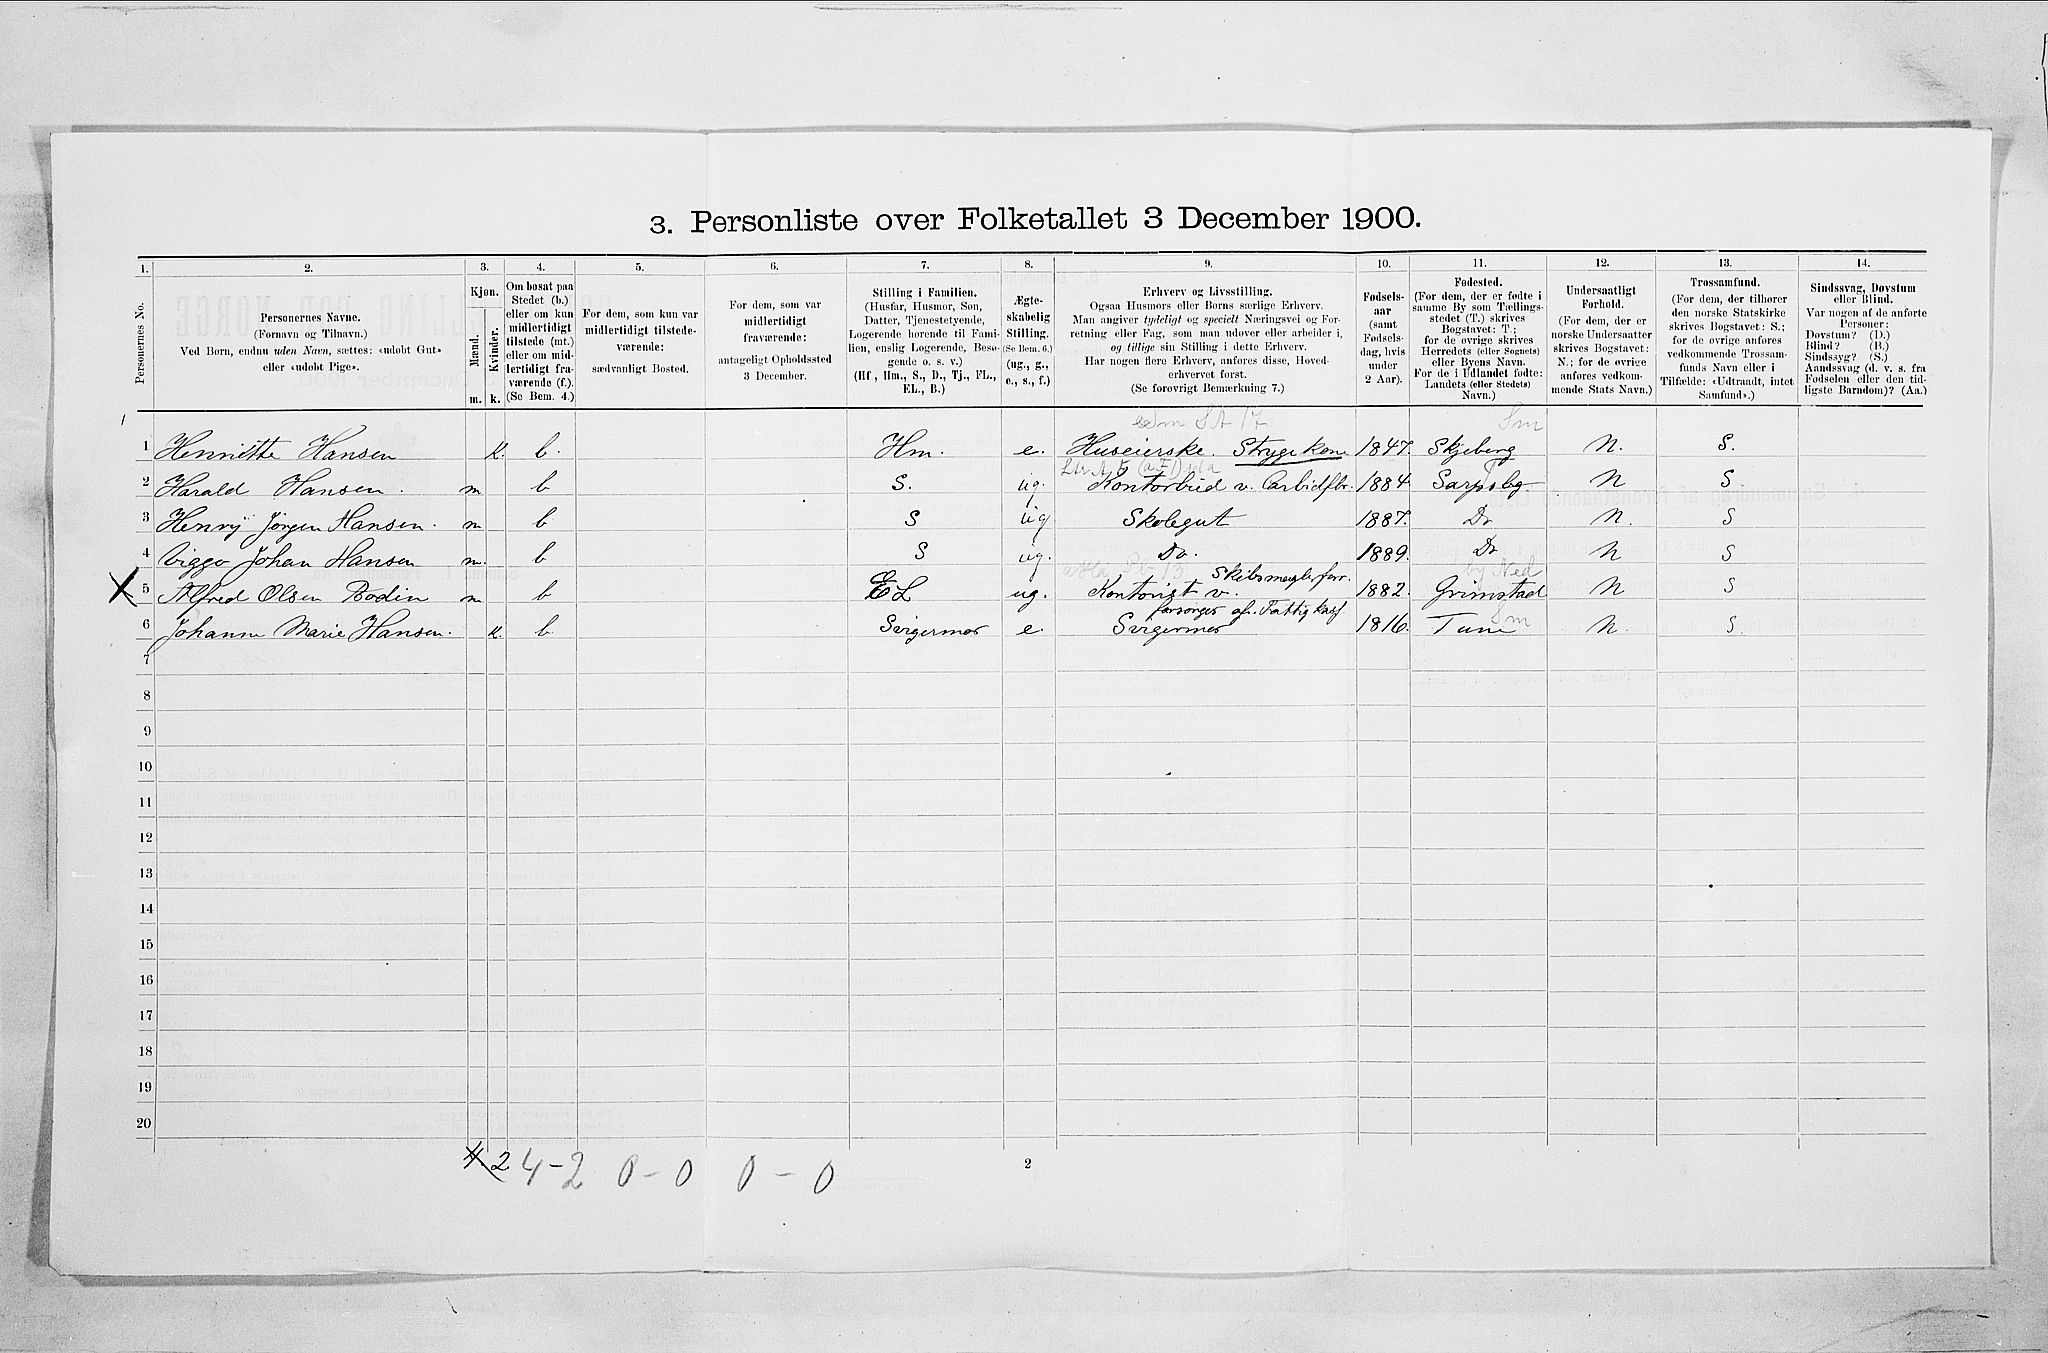 3. Personliste over Folketallet 3 December 1900.
1. 2. 3. 4. 5. 6. 7. 8. 9. 10. 11. 12. 13. 14.
Personernes No.
Personernes Navne.
(Fornavn og Tilnavn.)
Ved Børn, endnu uden Navn, sættes: «udøbt Gut»
eller «udøbt Pige».
Kjøn.
Mænd.
Kvinder.
m. k.
Om bosat paa
Stedet (b.)
eller om kun
midlertidigt
tilstede (mt.)
eller om mid-
lertidigt fra-
værende (f.).
(Se Bem. 4.)
For dem, som kun var
midlertidigt tilstede-
værende:
sædvanligt Bosted.
For dem, som var
midlertidigt
fraværende:
antageligt Opholdssted
3 December.
Stilling i Familien.
(Husfar, Husmor, Søn,
Datter, Tjenestetyende,
Logerende hørende til Fami-
lien, enslig Logerende, Besø-
gende o. s. v.)
(Hf., Hm., S., D., Tj., FL.,
EL., B.)
Ægte-
skabelig
Stilling.
(Se Bem. 6.)
(ug., g.,
e., s., f.)
Erhverv og Livsstilling.
Ogsaa Husmors eller Børns særlige Erhverv.
Man angiver tydeligt og specielt Næringsvei og For-
retning eller Fag, som man udøver eller arbeider i,
og tillige sin Stilling i dette Erhverv.
Har nogen flere Erhverv, anføres disse, Hoved-
erhvervet først.
(Se forøvrigt Bemærkning 7.)
Fødsels-
aar
(samt
Fødsels-
dag, hvis
under
2 Aar).
Fødested.
(For dem, der er fødte i
samme By som Tællings-
stedet (T.) skrives
Bogstavet: T;
for de øvrige skrives
Herredets (eller Sognets)
eller Byens Navn.
For de i Udlandet fødte:
Landets (eller Stedets)
Navn.)
Undersaatligt
Forhold.
(For dem, der er
norske Undersaatter
skrives Bogstavet:
N.; for de øvrige
anføres vedkom-
mende Stats Navn.)
Trossamfund.
(For dem, der tilhører
den norske Statskirke
skrives Bogstavet: S.;
for de øvrige anføres
vedkommende Trossam-
funds Navn eller i
Tilfælde: «Udtraadt, intet
Samfund».)
Sindssvag, Døvstum
eller Blind.
Var nogen af de anførte
Personer:
Døvstum? (D.)
Blind? (B.)
Sindssyg? (S.)
Aandssvag (d. v. s. fra
Fødselen eller den tid-
ligste Barndom)? (Aa.)
Sm
1 Henriette Hansen k. b. Hm. e. Huseierske. Strygekone 1847. Skjeberg N. S.
2 Harald Hansen. m b S. ug. Kontorbud v. Carbidfbr. 1884 Sarpsbg N S
3 Henry Jörgen Hansen. m b S ug Skolegut 1887. Do N. S
4 Viggo Johan Hansen m. b S ug. Do. 1889. Do N S
Skibsmæglerforr.
5 Alfred Olsen Bodin m b EL ug. Kontorist v. 1882. Grimstad N S
forsørges af. Fattigkasf
6 Johanne Marie Hansen. k. b Svigermor e. Svigermor 1816. Tune N. S.
7
8
9
10
11
12
13
14
15
16
17
18
19
20
2 4-2 0-0 0-0
2